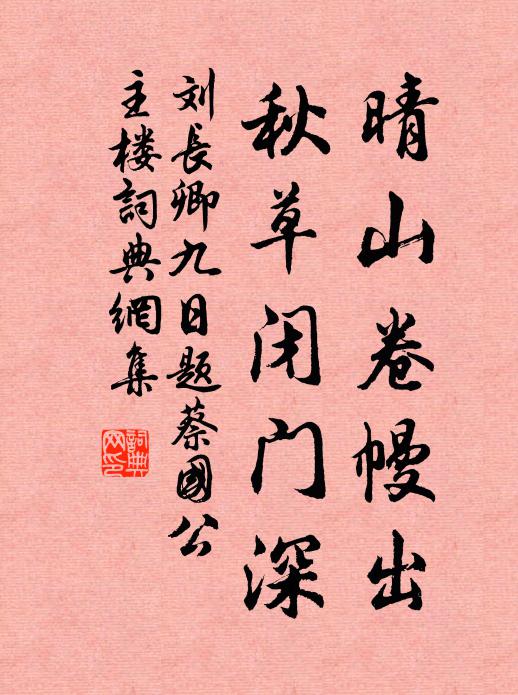 晴山卷幔出
秋草闭门深
刘長卿九日题蔡國公
主楼詞典網集
詞典网印